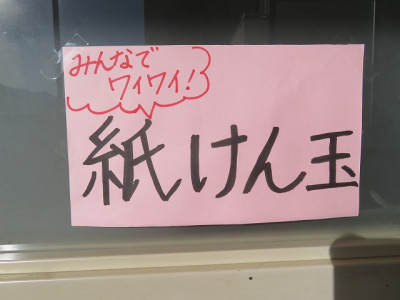 みんなで
ワイワイ!
紙けん玉